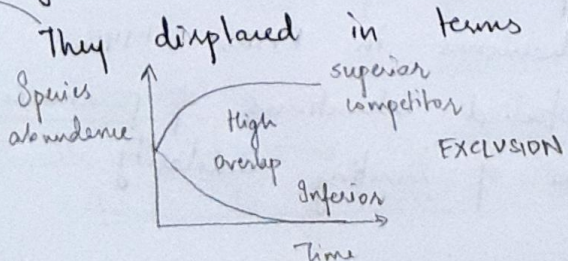 They displaced in terms
Species
abundence
superior
competitor
High
overlap
EXCLUSION
Inferior
Time